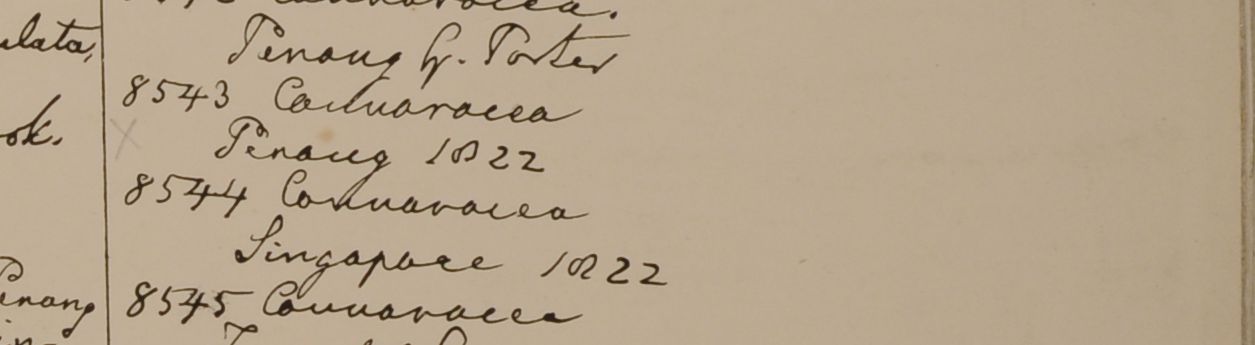 ulata,
ok.
Penang
Connaracea.
Penang G. Porter
8543 Connaracea
Penang 1822
8544 Connaracea
Singapore 1822
8545 Connaracea